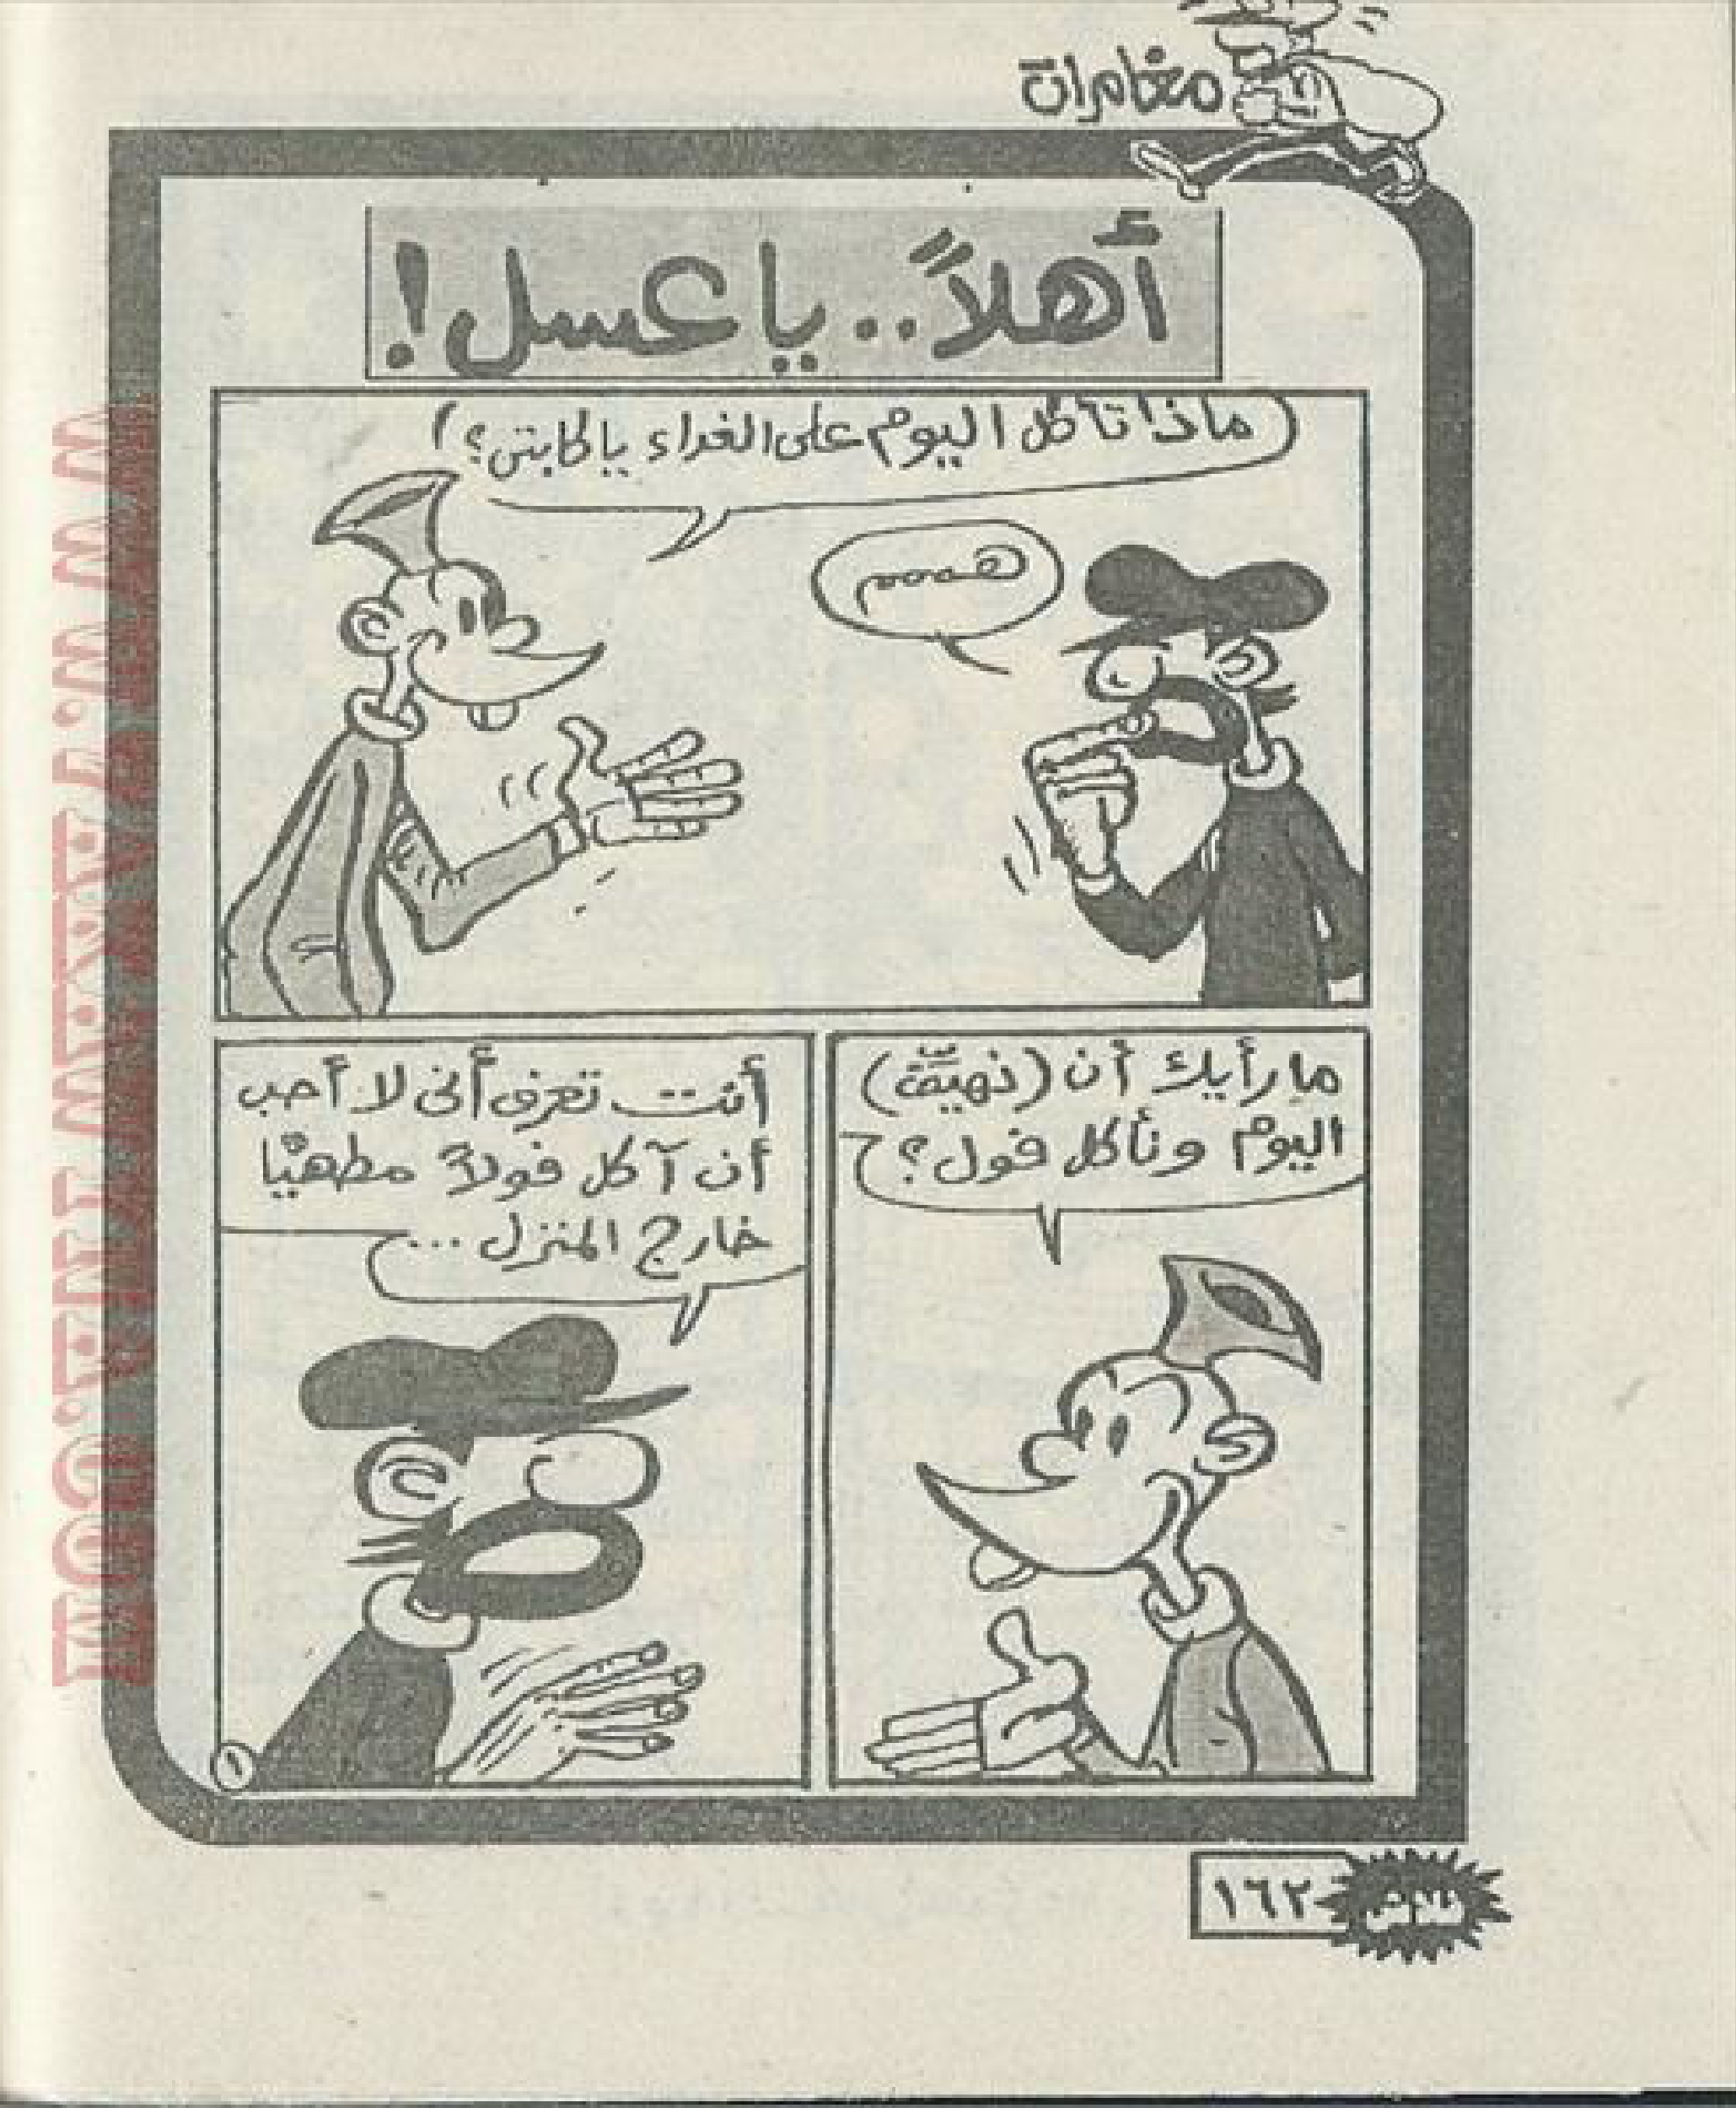 مغامرات
أهلاً.. يا عسل!
ماذا تأكل اليوم على الغداء يا كابتن؟
همممم
ما رأيك أن (نهيّق)
اليوم ونأكل فول؟
أنت تعرف أنى لا أحب
أن آكل فولاً مطهيًا
خارج المنزل...
١
فلاش
١٦٢